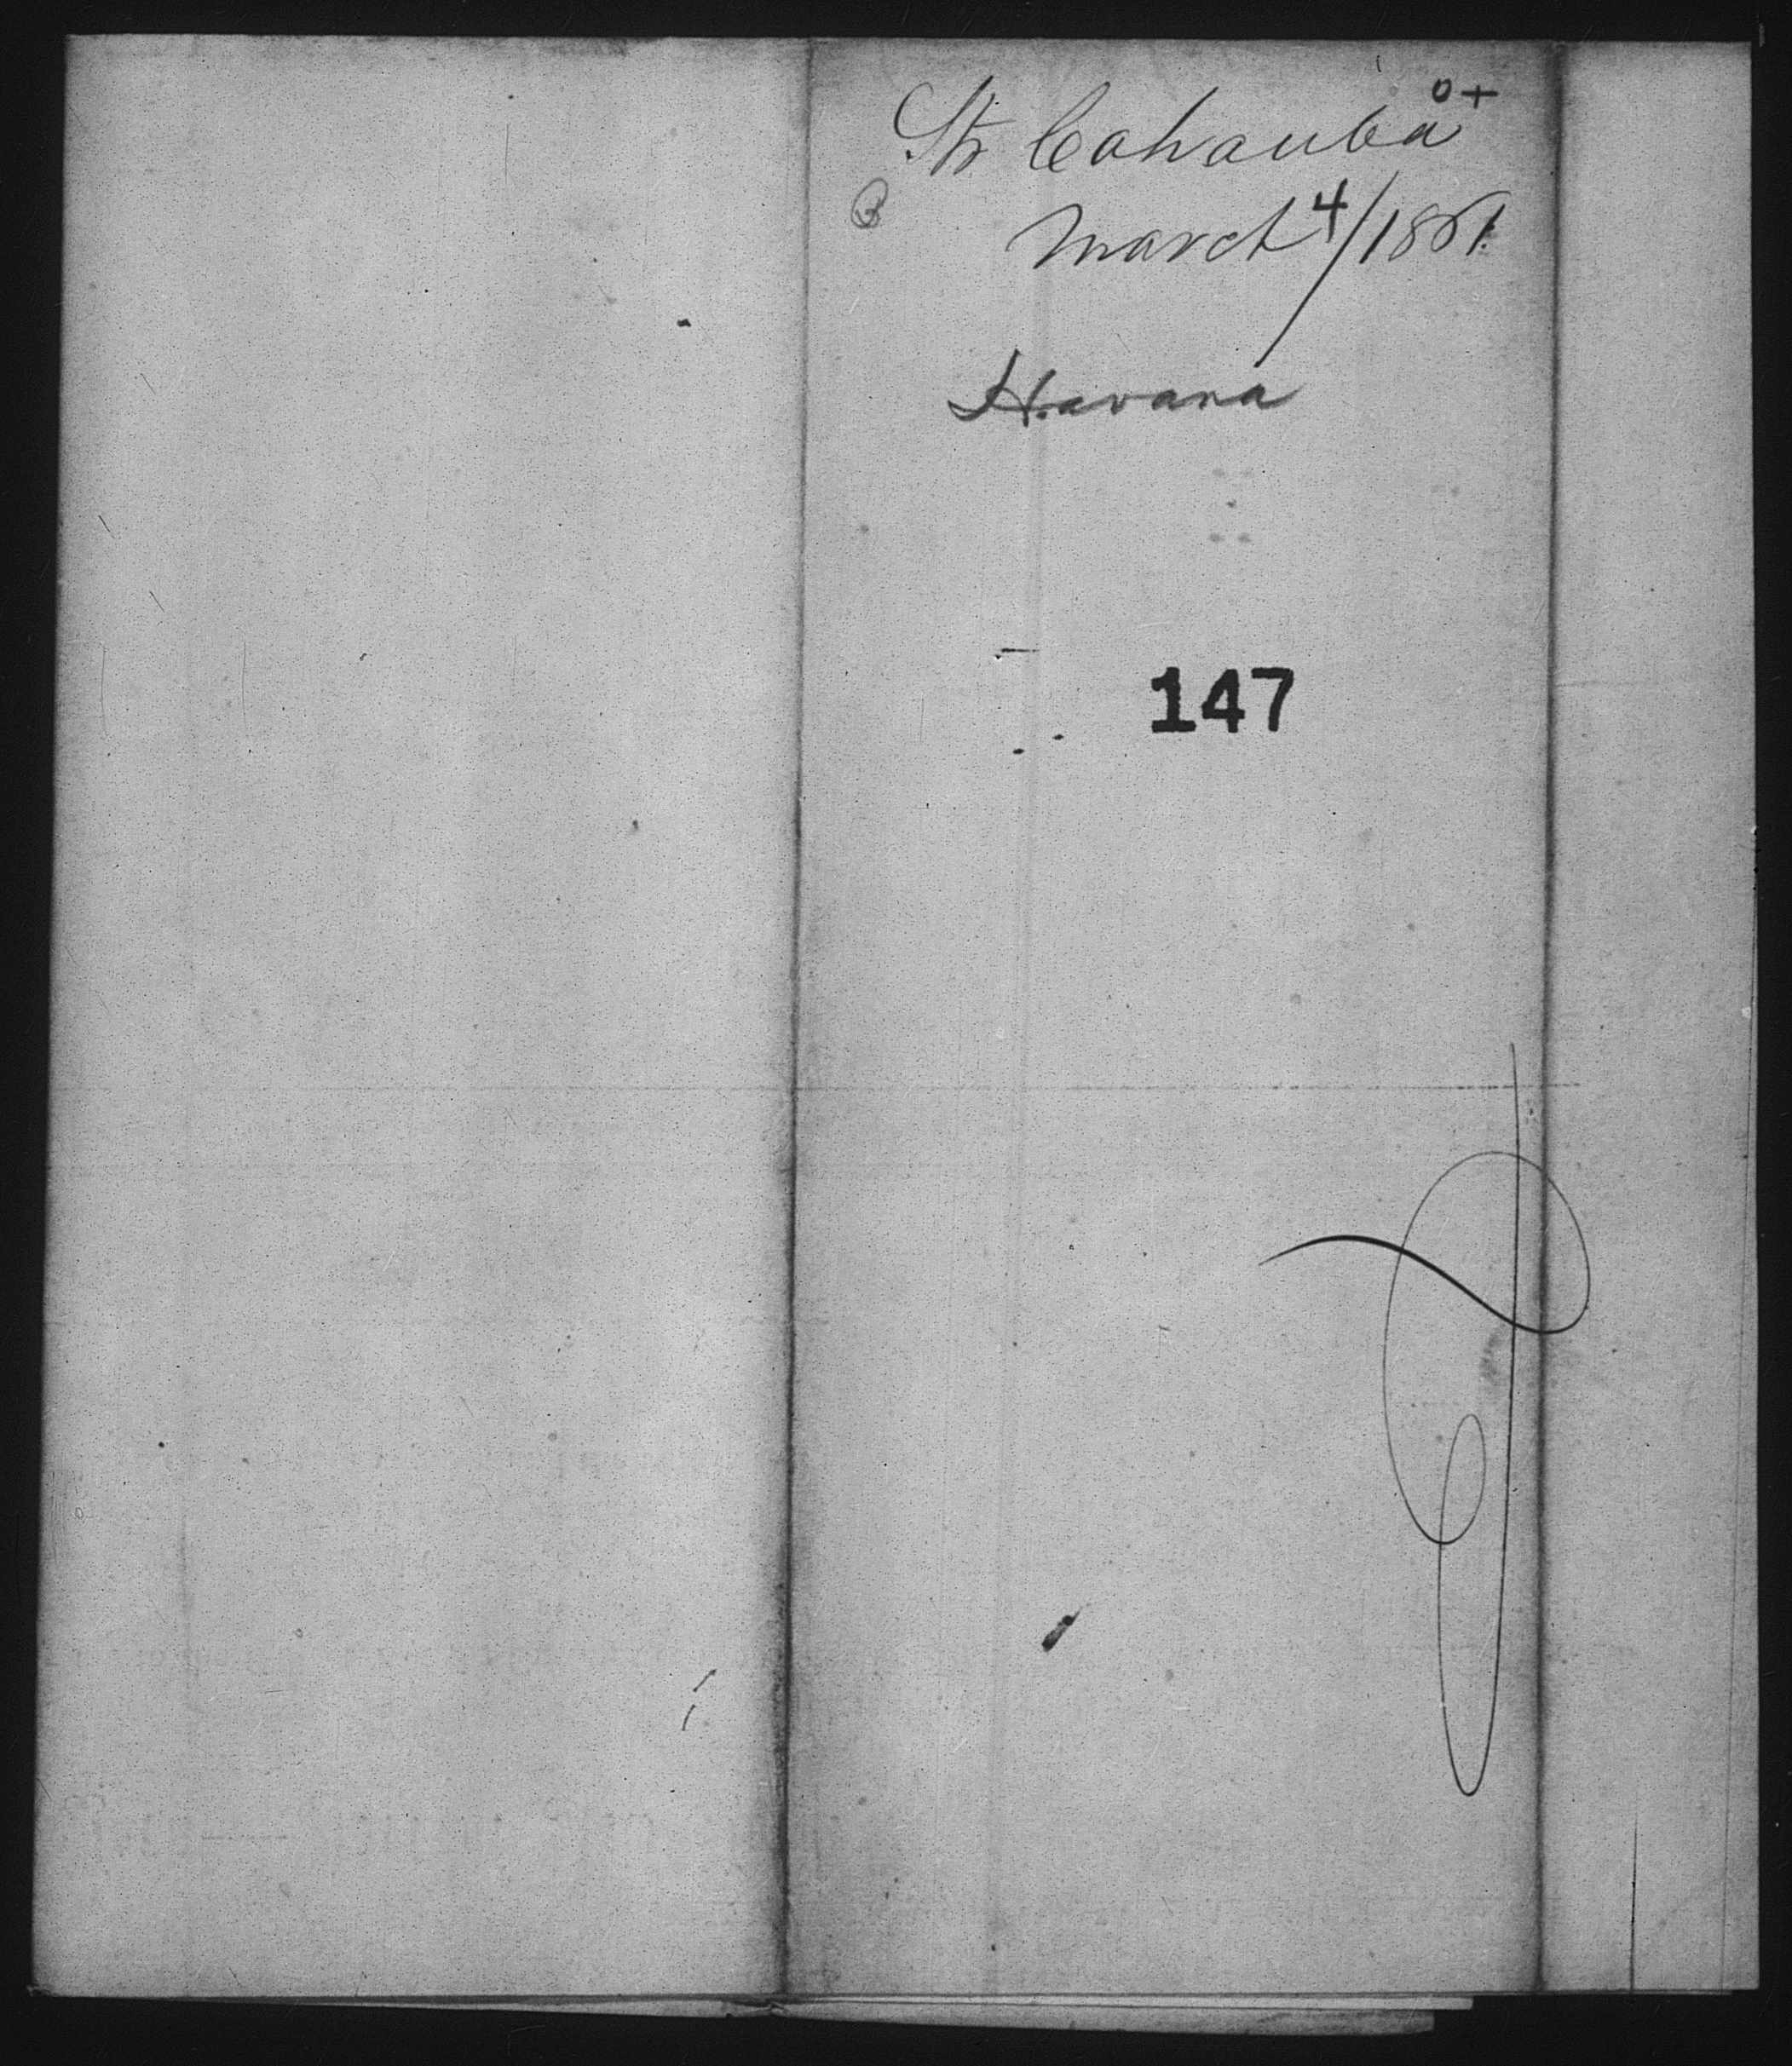 o+
Str Cahauba
3
March 4/1861.
Havana
147